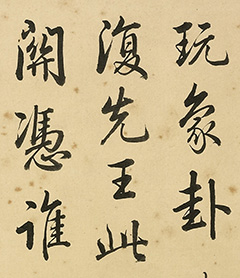 玩象卦
復先王此
關憑誰